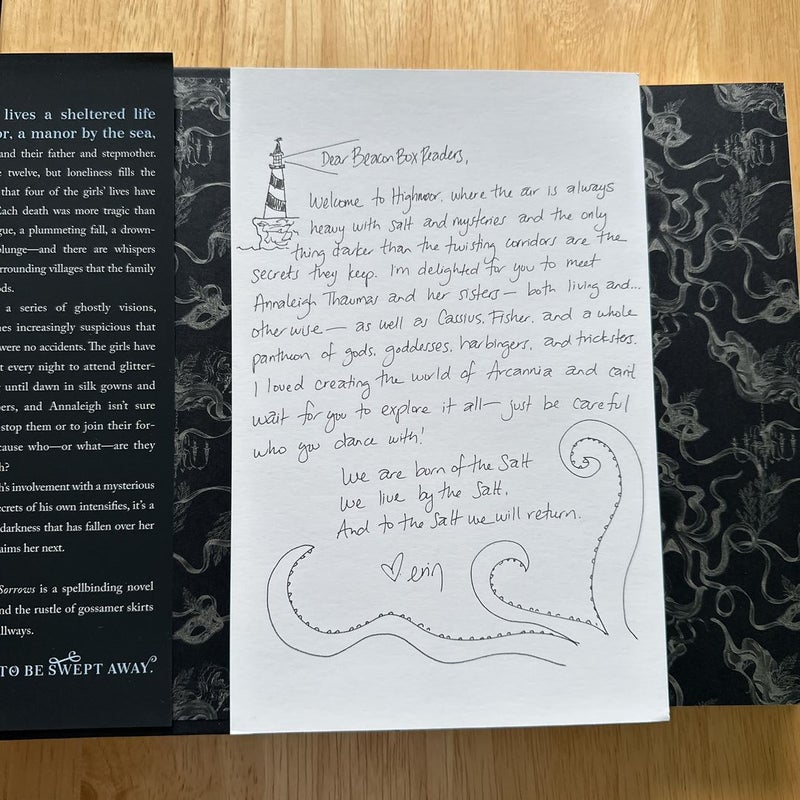 lives a sheltered life
or, a manor by the sea,
and their father and stepmother.
e twelve, but loneliness fills the
that four of the girls' lives have
Each death was more tragic than
gue, a plummeting fall, a drown-
plunge—and there are whispers
rrounding villages that the family
ods.
a series of ghostly visions,
nes increasingly suspicious that
were no accidents. The girls have
t every night to attend glitter-
until dawn in silk gowns and
pers, and Annaleigh isn't sure
stop them or to join their for-
cause who—or what—are they
h?
h's involvement with a mysterious
ecrets of his own intensifies, it's a
darkness that has fallen over her
aims her next.
Sorrows is a spellbinding novel
nd the rustle of gossamer skirts
llways.
TO BE SWEPT AWAY.
Dear Beacon Box Readers,
Welcome to Highmoor, where the air is always
heavy with salt and mysteries and the only
thing darker than the twisting corridors are the
secrets they keep. I'm delighted for you to meet
Annaleigh Thaumas and her sisters — both living and...
otherwise — as well as Cassius, Fisher, and a whole
pantheon of gods, goddesses, harbingers, and tricksters.
I loved creating the world of Arcannia and can't
wait for you to explore it all — just be careful
who you dance with!
We are born of the Salt
We live by the Salt,
And to the Salt we will return.
♡ erin